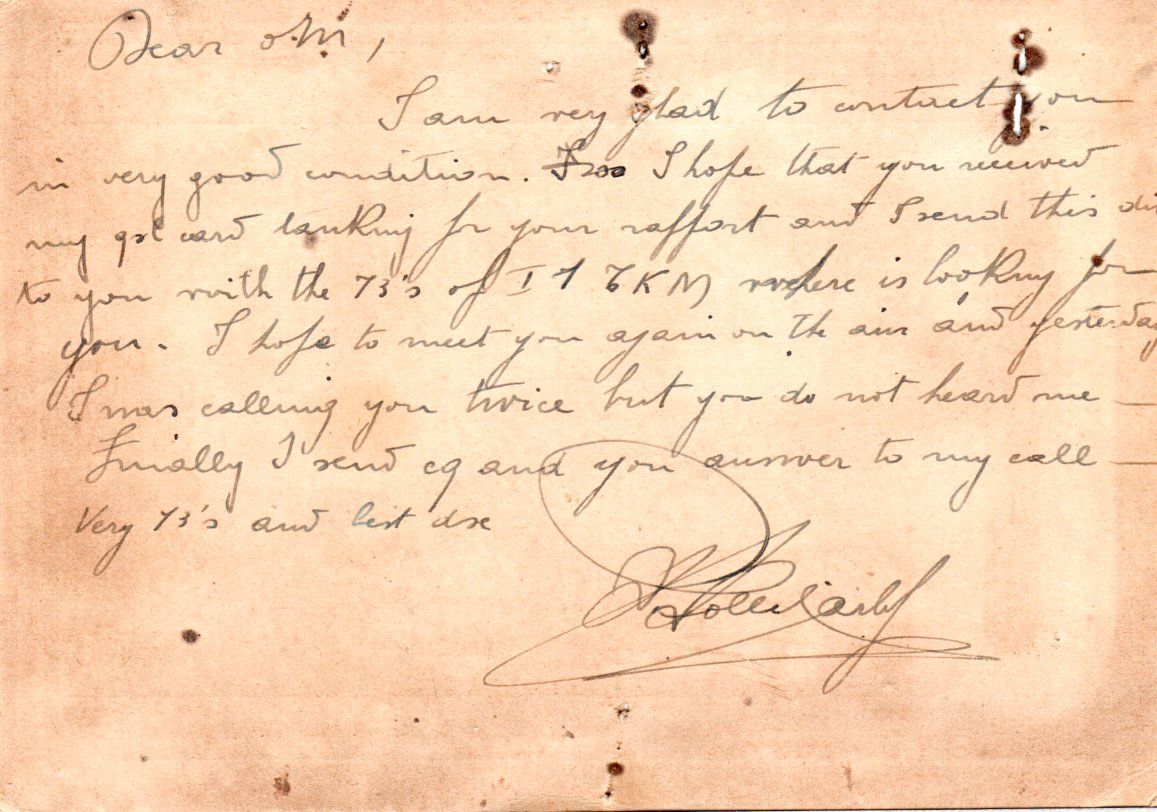 Dear oM,
I am very glad to contact you
in very good condition. I hope that you received
my qsl card tanking for your raffort and I send this
to you with the 73's of I 1 where is looking for
you. I hope to meet you again on the air and yesterday
I was calling you twice but you do not heard me —
Finally I send cq and you answer to my call —
Very 73's and best dx